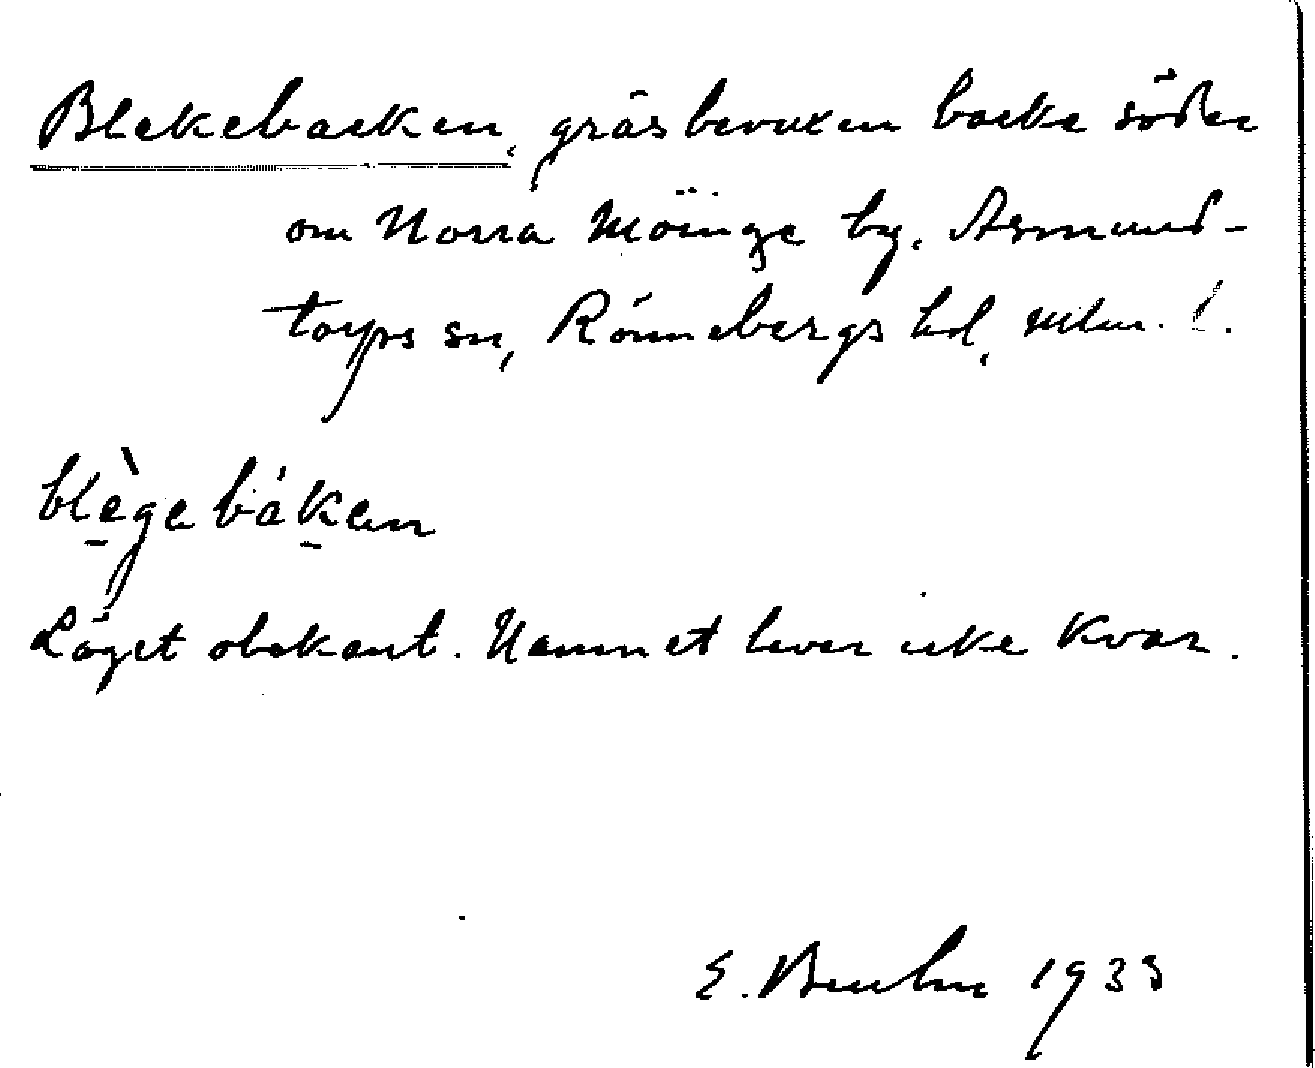 Blekebacken, gräsbevuxen backe söder
om Norra Möinge by. Asmund-
torps sn, Rönnebergs hd, Mlm. l.
blègebákan
Läget obekant. Namnet lever icke kvar.
E. 1933